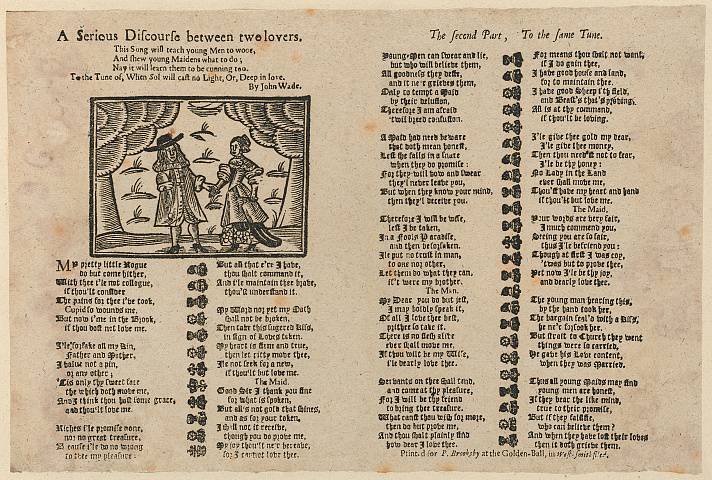 A Serious Discourse between two lovers.
This Song will teach young Men to wooe,
And shew young Maidens what to do;
Nay it will learn them to be cunning too.
To the Tune of, When Sol will cast no Light, Or, Deep in love.
By John Wade.
MY pretty little Rogue
do but come hither,
With thee i'le not collogue,
if thou'lt consider
The pains for thee i've took,
Cupid so wounds me.
But now i'me in the Brook,
if thou dost not love me.
I'le forsake all my kin,
Father and Mother,
I value not a pin,
or any other;
'Tis only thy sweet face
the which doth move me,
And I think thou hast some grace,
and thou'lt love me.
Riches i'le promise none,
nor no great treasure,
Because i'le do no wrong
to thee my pleasure:
But all that e'r I have,
thou shalt command it,
And i'le maintain thee brave,
thou'lt understand it.
My Word nor yet my Oath
shall not be broken.
Then take this sugered kiss,
in sign of Loves token.
My heart is firm and true,
then let pitty move thee,
Ile not seek for a new,
if thou'lt but love me.
The Maid.
Good Sir I thank you fine
for what is spoken,
But all's not gold that shines,
and as for your token,
I will not it receive,
though you do prove me,
My joy thou'lt ne'r bereave,
for I cannot love thee.
The second Part, To the same Tune.
Young-Men can swear and lie,
but who will believe them,
All goodness they defie,
and it ne'r grieves them,
Only to tempt a Maid
by their delusion,
Therefore I am afraid
'twill breed confusion.
A Maid had need beware
that doth mean honest,
Lest she falls in a snare
when they do promise:
For they will vow and swear
they'l never leave you,
But when they know your mind,
then they'l deceive you.
Therefore I will be wise,
lest I be taken,
In a Fools Paradise,
and then forsaken.
Ile put no trust in man,
to one nor other,
Let them do what they can,
if't were my brother.
The Man.
My Dear you do but jest,
I may boldly speak it,
Of all I love thee best,
prithee so take it.
There is no flesh alive
ever shall move me.
If thou wilt be my Wife,
i'le dearly love thee.
Servants on thee shall tend,
and come at thy pleasure,
For I will be thy friend
to bring thee treasure.
What canst thou wish for more,
then do but prove me,
And thou shalt plainly find
how dear I love thee.
For means thou shalt not want,
if I do gain thee,
I have good house and land,
for to maintain thee.
I have good Sheep i'th field,
and Beast's that's proving,
All is at thy command,
if thou'lt be loving.
I'le give thee gold my dear,
I'le give thee money,
Then thou need'st not to fear,
I'le be thy honey:
No Lady in the Land
ever shall move me,
Thou'st have my heart and hand
if thou'lt but love me.
The Maid,
Your words are very fair,
I much commend you,
Seeing you are so fair,
thus i'le befriend you:
Though at first I was coy,
'twas but to prove thee,
Yet now I'le be thy joy,
and dearly love thee.
The young man hearing this,
by the hand took her,
The bargain seal'd with a kiss,
he ne'r forsook her.
But strait to Church they went
things were so carried,
He gave his Love content,
when they was Married.
Thus all young Maids may find
young men are honest,
If they bear the like mind,
true to their promise,
But if they falsifie,
who can believe them?
And when they have lost their loves
then it doth grieve them.
Printed for P. Brooksby at the Golden-Ball, in West-smithfield.